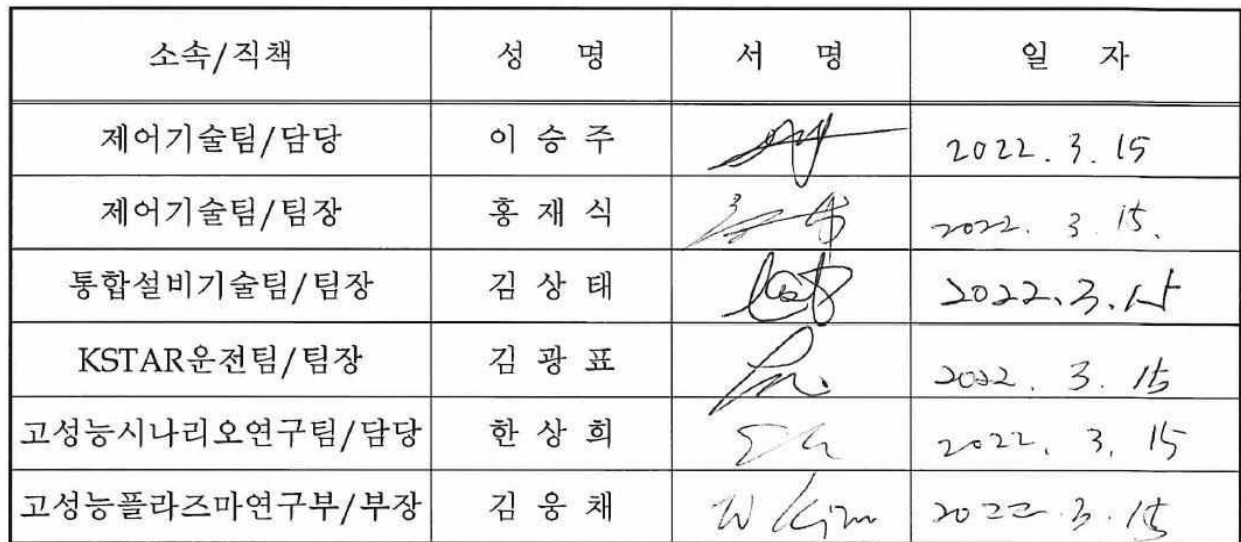 소속/직책 성 명 서 명 일 자
제어기술팀/담당 이 승 주 2022. 3. 15
제어기술팀/팀장 홍 재 식 2022. 3. 15.
통합설비기술팀/팀장 김 상 태 2022. 3. 15
KSTAR운전팀/팀장 김 광 표 2022. 3. 15
고성능시나리오연구팀/담당 한 상 희 2022. 3. 15
고성능플라즈마연구부/부장 김 웅 채 W Kim 2022. 3. 15